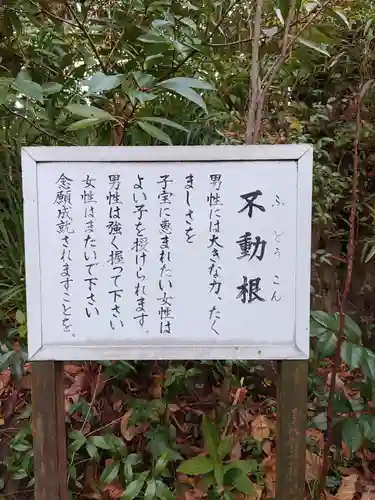 不動根
ふどうこん
男性には大きな力、たく
ましさを
子宝に恵まれたい女性は
よい子を授けられます。
男性は強く握って下さい
女性はまたいで下さい
念願成就されますことを。